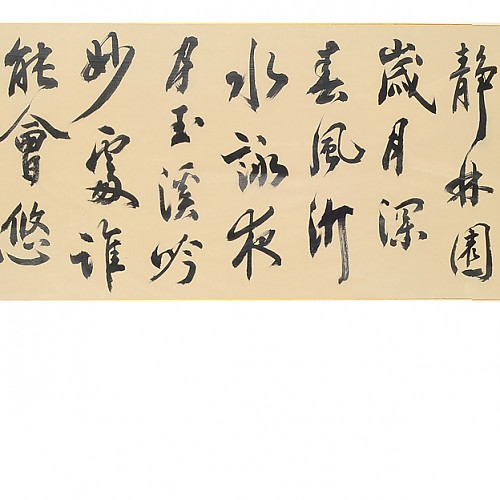 静林園
歲月深
春風沂
水詠夜
月玉溪吟
妙處誰
能會悠